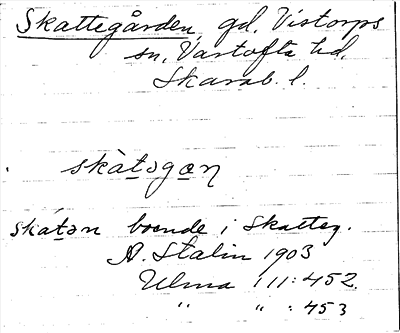 Skattegården, gd, Vistorps
sn, Vartofta hd,
Skarab. l.
skàtəgɑn
skatən boende i Skatteg.
A. Stalin 1903
Ulma 111:452
" " :453